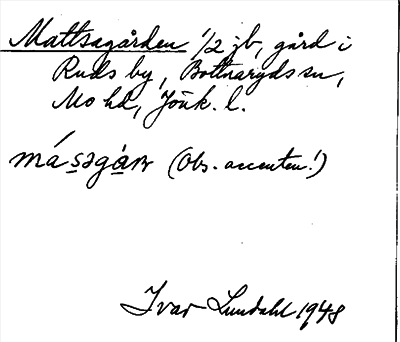 Mattsagården 1/2 jb, gård i
Ruds by, Bottnaryds sn,
Mo hd, Jönk. l.
másagàṛn (Obs. accenten!)
Ivar Lundahl 1948